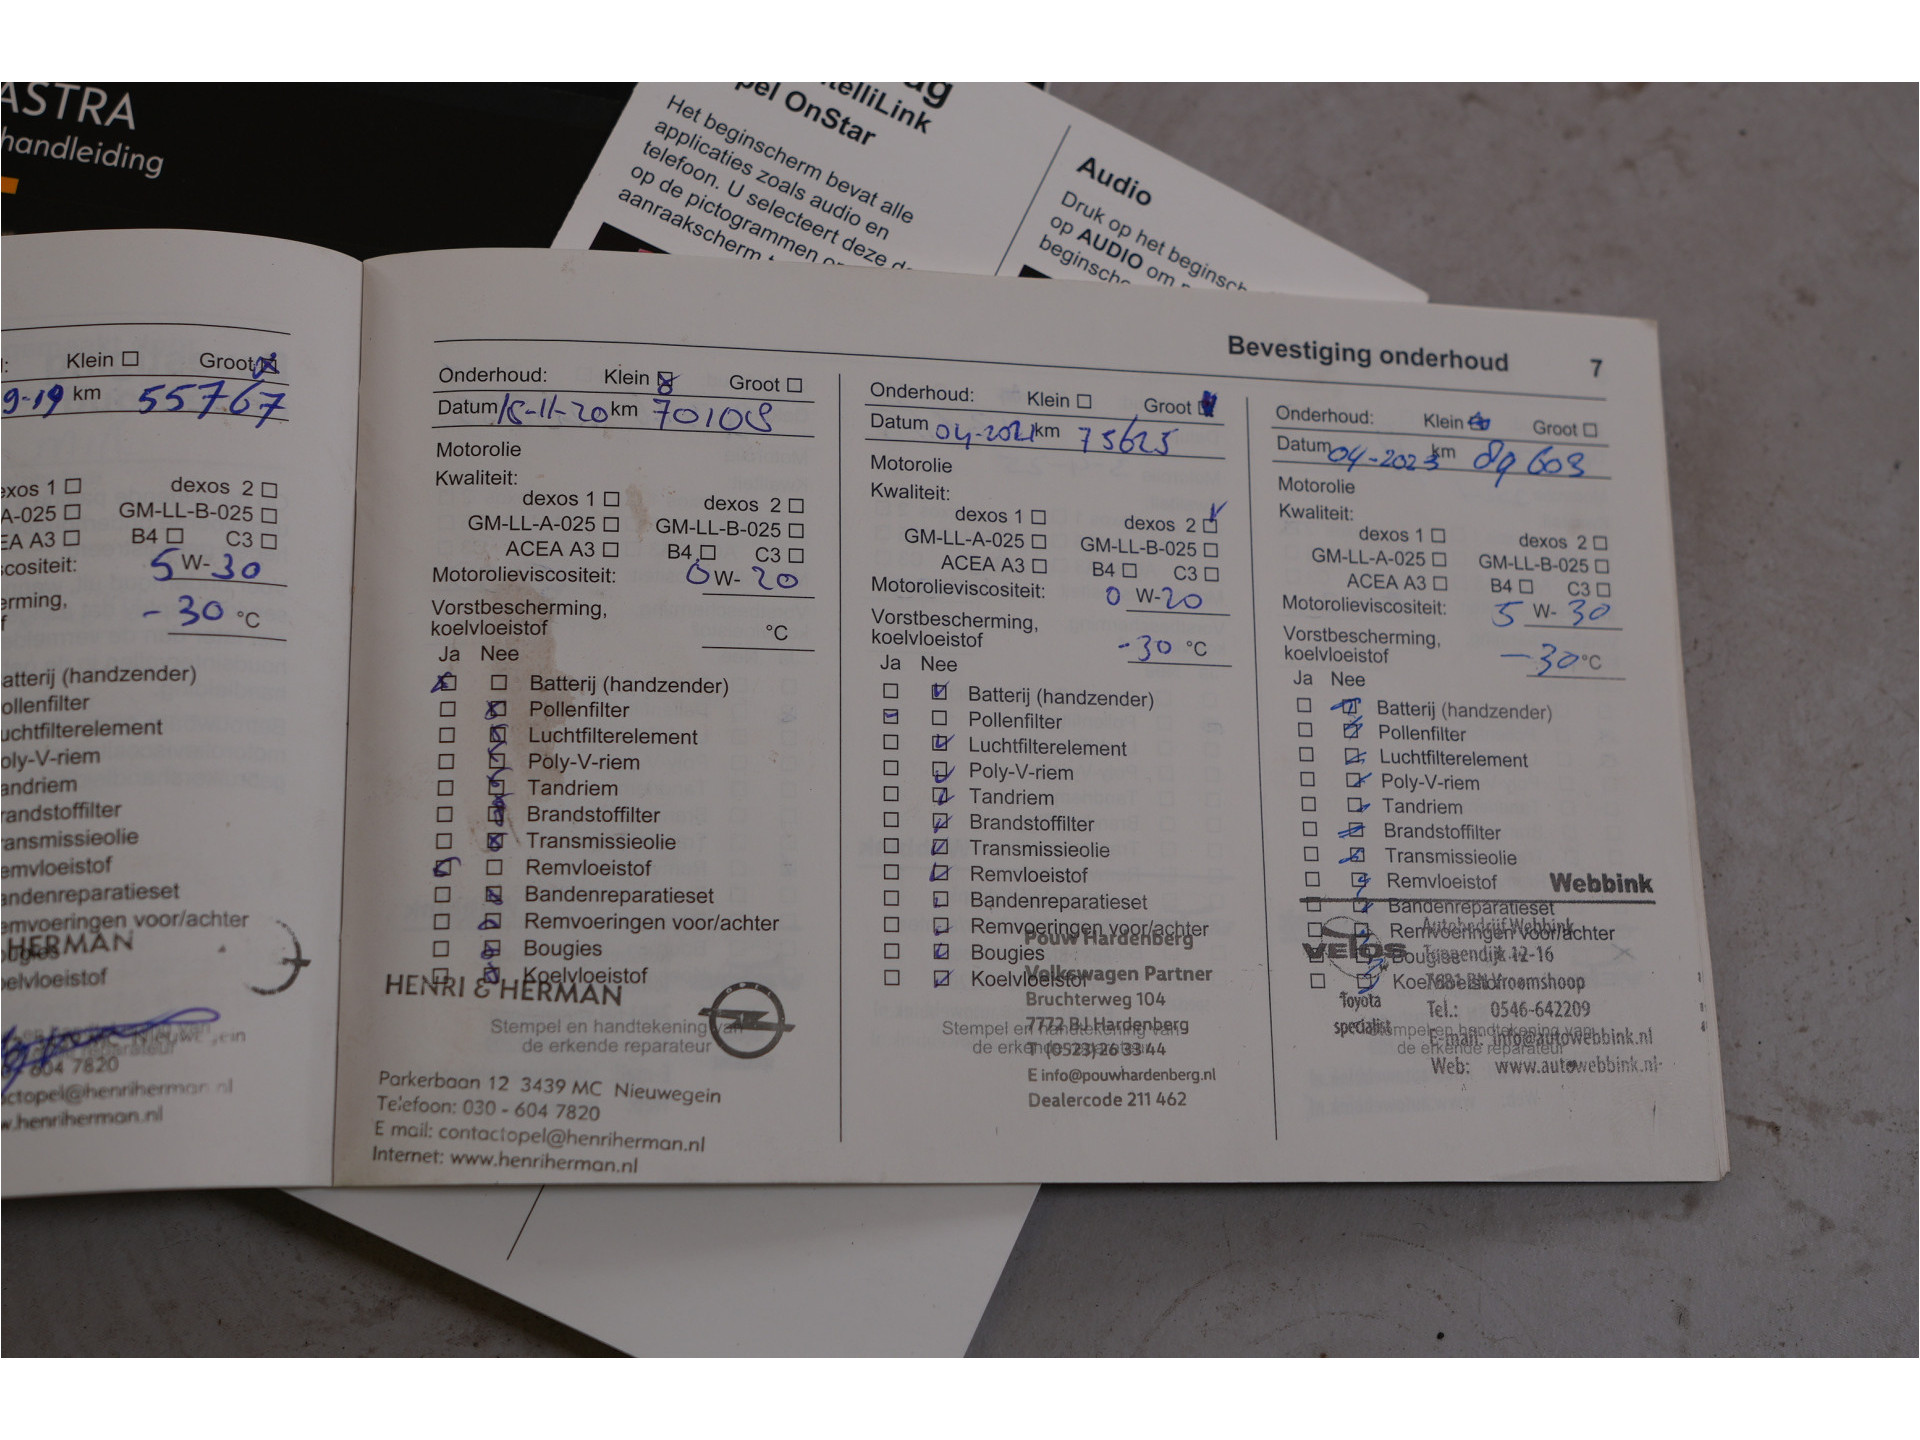 ASTRA
handleiding
telliLink
pel OnStar
Het beginscherm bevat alle
applicaties zoals audio en
telefoon. U selecteert deze d
op de pictogrammen
aanraakscherm
Audio
Druk op het beginsch
op AUDIO om
beginsche
Klein ☐ Groot ☒
9-19 km 55767
exos 1 ☐ dexos 2 ☐
A-025 ☐ GM-LL-B-025 ☐
EA A3 ☐ B4 ☐ C3 ☐
cositeit: 5 W- 30
erming,
f -30 °C
atterij (handzender)
ollenfilter
uchtfilterelement
oly-V-riem
andriem
randstoffilter
ransmissieolie
emvloeistof
andenreparatieset
emvoeringen voor/achter
HERMAN
ougies
oelvloeistof
en van
MC Nieuwe ein
reparateur
604 7820
ctopel@henriherman nl
w.henriherman.nl
Bevestiging onderhoud 7
Onderhoud: Klein ☒ Groot ☐
Datum 18-11-20 km 70108
Motorolie
Kwaliteit:
dexos 1 ☐ dexos 2 ☐
GM-LL-A-025 ☐ GM-LL-B-025 ☐
ACEA A3 ☐ B4 ☐ C3 ☐
Motorolieviscositeit: 0 W- 20
Vorstbescherming,
koelvloeistof °C
Ja Nee
☒ ☐ Batterij (handzender)
☐ ☒ Pollenfilter
☐ ☒ Luchtfilterelement
☐ ☒ Poly-V-riem
☐ ☒ Tandriem
☐ ☒ Brandstoffilter
☐ ☒ Transmissieolie
☒ ☐ Remvloeistof
☐ ☒ Bandenreparatieset
☐ ☒ Remvoeringen voor/achter
☐ ☒ Bougies
☐ ☒ Koelvloeistof
HENRI & HERMAN
OPEL
Stempel en handtekening van
de erkende reparateur
Parkerbaan 12 3439 MC Nieuwegein
Telefoon: 030 - 604 7820
E mail: contactopel@henriherman.nl
Internet: www.henriherman.nl
Onderhoud: Klein ☐ Groot ☒
Datum 04-2021 km 75625
Motorolie
Kwaliteit:
dexos 1 ☐ dexos 2 ☑
GM-LL-A-025 ☐ GM-LL-B-025 ☐
ACEA A3 ☐ B4 ☐ C3 ☐
Motorolieviscositeit: 0 W-20
Vorstbescherming,
koelvloeistof -30 °C
Ja Nee
☐ ☑ Batterij (handzender)
☑ ☐ Pollenfilter
☐ ☑ Luchtfilterelement
☐ ☑ Poly-V-riem
☐ ☑ Tandriem
☐ ☑ Brandstoffilter
☐ ☑ Transmissieolie
☐ ☑ Remvloeistof
☐ ☑ Bandenreparatieset
☐ ☑ Remvoeringen voor/achter
Pouw Hardenberg
☐ ☑ Bougies
Volkswagen Partner
☐ ☑ Koelvloeistof
Bruchterweg 104
7772 BJ Hardenberg
Stempel en handtekening van
de erkende reparateur
T (0523) 26 33 44
E info@pouwhardenberg.nl
Dealercode 211 462
Onderhoud: Klein ☒ Groot ☐
Datum 04-2023 km 89603
Motorolie
Kwaliteit:
dexos 1 ☐ dexos 2 ☐
GM-LL-A-025 ☐ GM-LL-B-025 ☐
ACEA A3 ☐ B4 ☐ C3 ☐
Motorolieviscositeit: 5 W- 30
Vorstbescherming,
koelvloeistof -30 °C
Ja Nee
☐ ☑ Batterij (handzender)
☐ ☑ Pollenfilter
☐ ☑ Luchtfilterelement
☐ ☑ Poly-V-riem
☐ ☑ Tandriem
☐ ☑ Brandstoffilter
☐ ☑ Transmissieolie
☐ ☑ Remvloeistof
Webbink
☐ ☑ Bandenreparatieset
Autobedrijf Webbink
☐ ☑ Remvoeringen voor/achter
VELOS
☐ ☑ Bougies
12-16
☐ ☑ Koelvloeistof
7681 BN Vroomshoop
Toyota
specialist
Tel.: 0546-642209
Stempel en handtekening van
E-mail: info@autowebbink.nl
de erkende reparateur
Web: www.autowebbink.nl